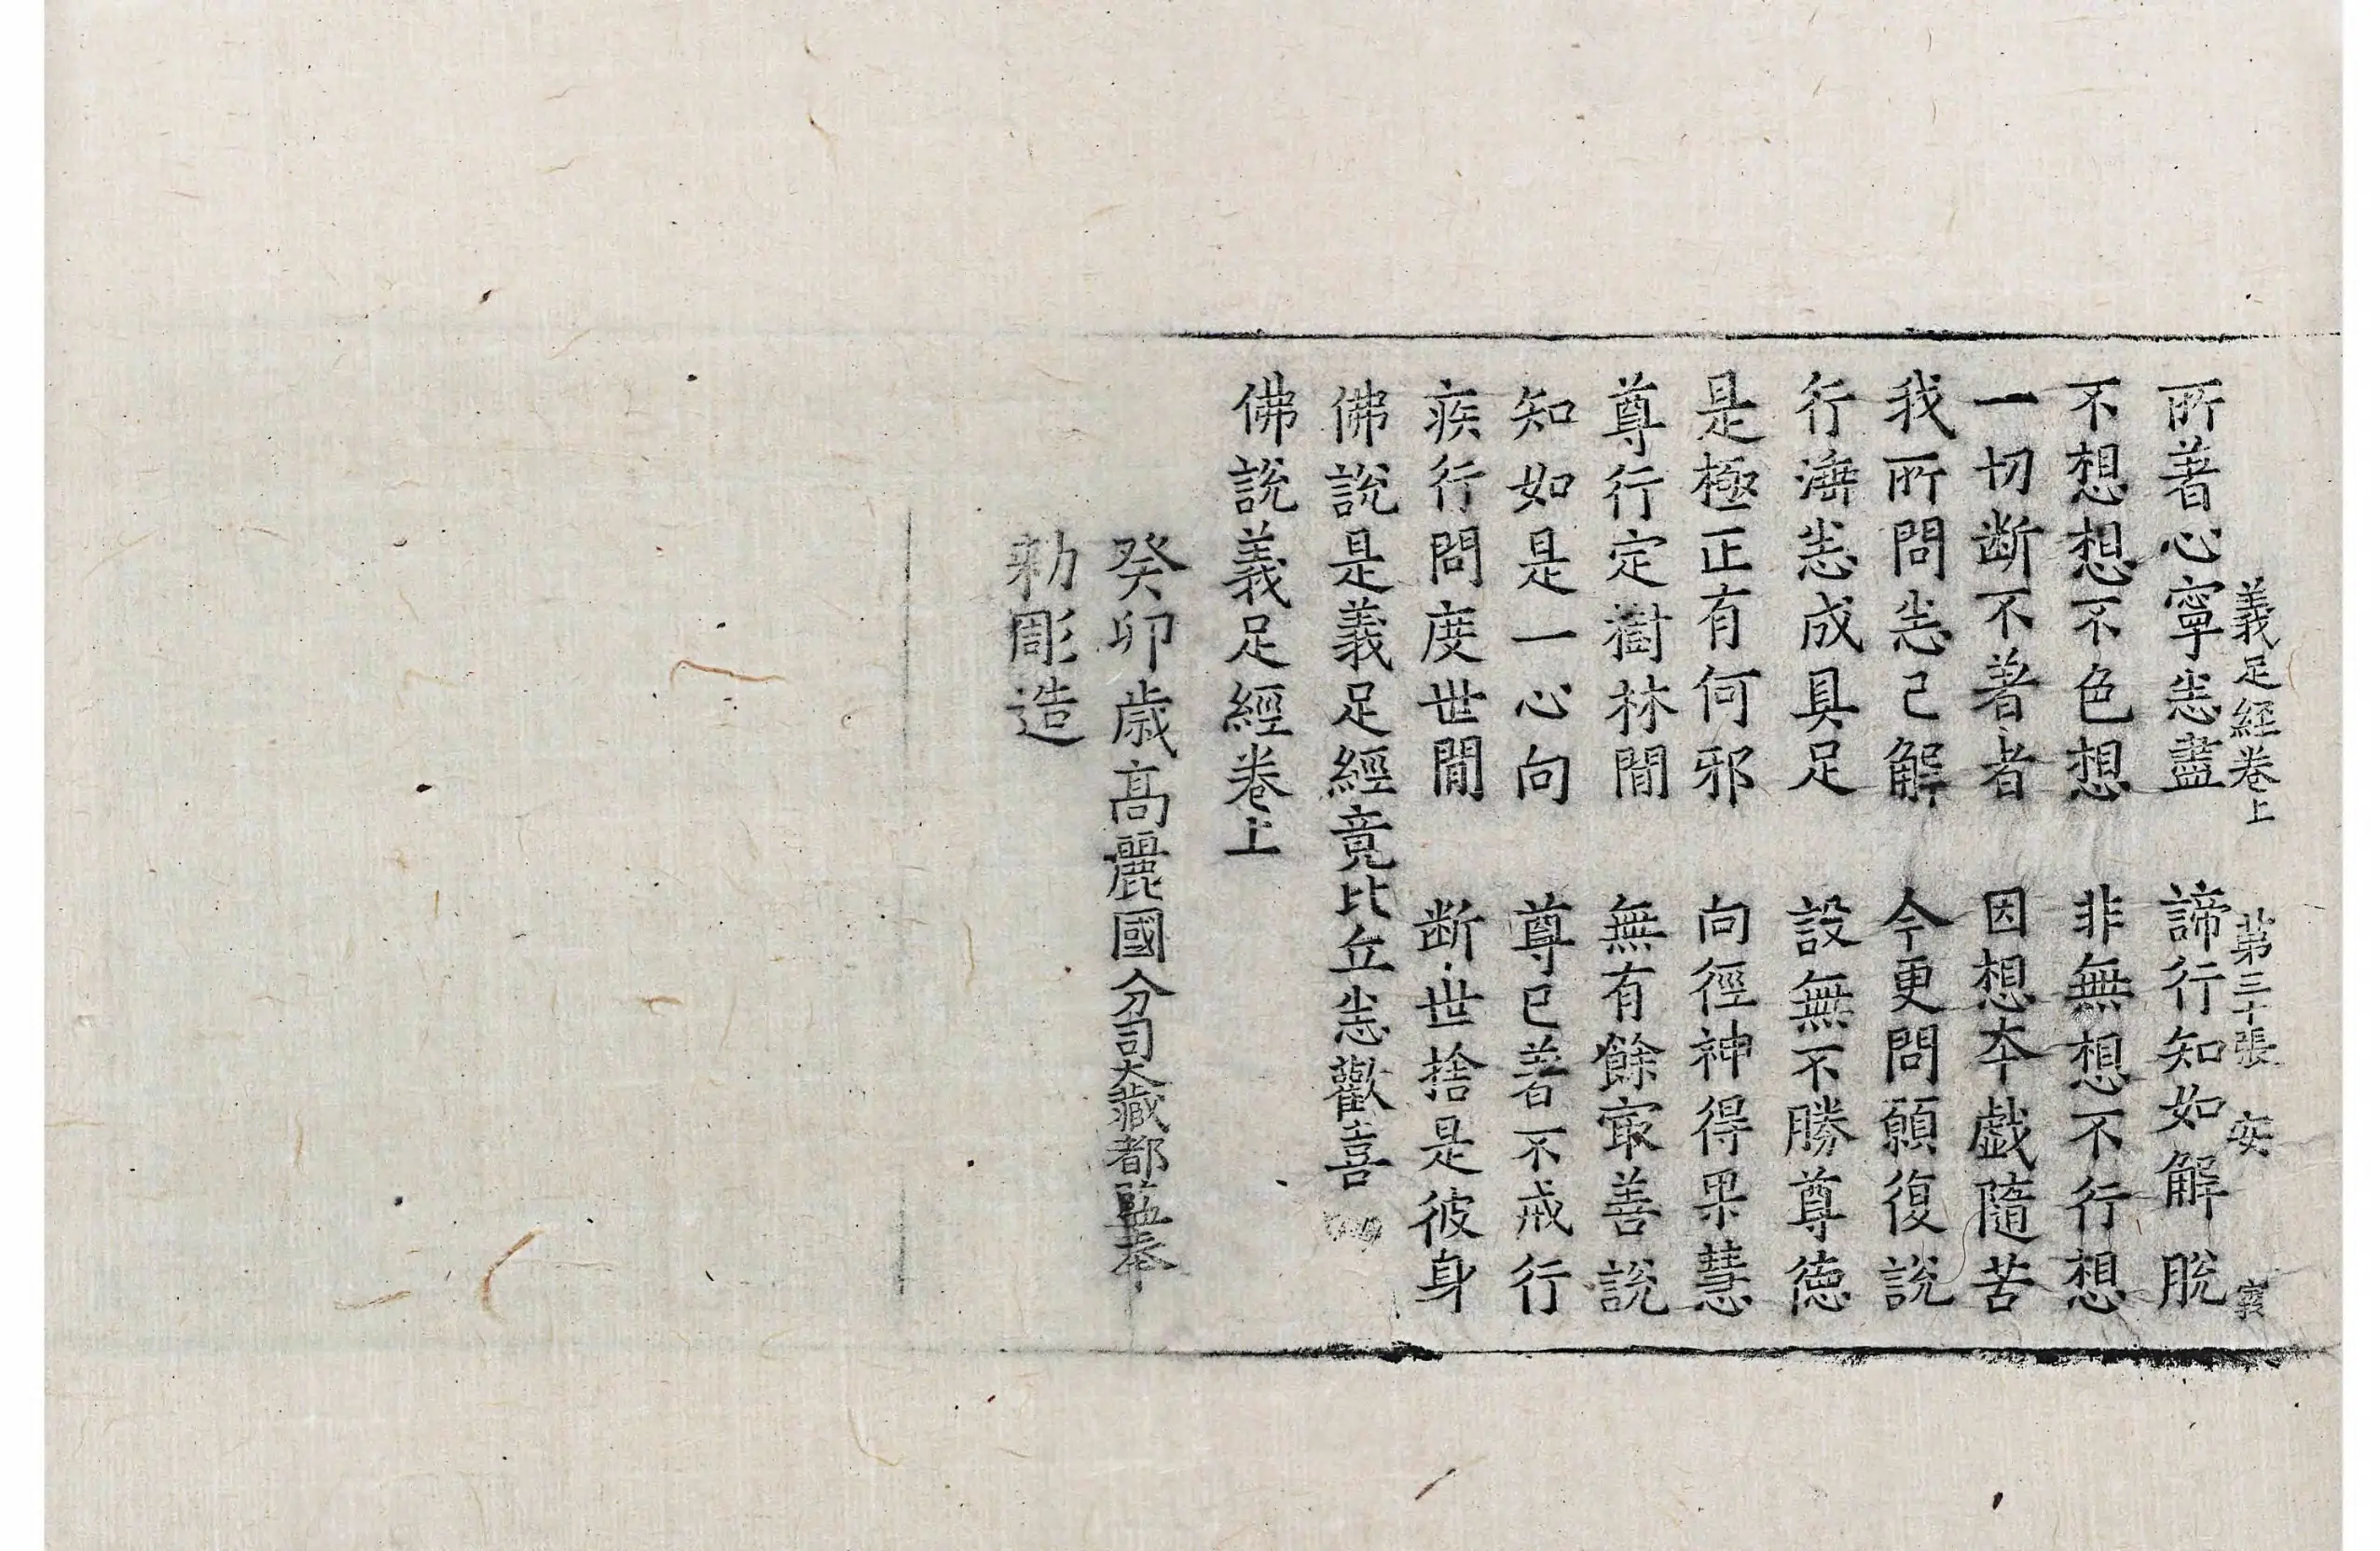 義足經卷上　第三十張　安
所著心寧恙盡　諦行知如解脫
不想想不色想　非無想不行想
一切斷不著者　因想夲戱隨苦
我所問恙已解　今更問願復說
行淸恙成具足　設無不勝尊德
是極正有何邪　向徑神得果慧
尊行定樹林閒　無有餘㝡善說
知如是一心向　尊已著不戒行
疾行問度世閒　斷世捨是彼身
佛說是義足經竟比丘恙歡喜
佛說義足經卷上
癸卯歲高麗國分司大藏都監奉
勅彫造